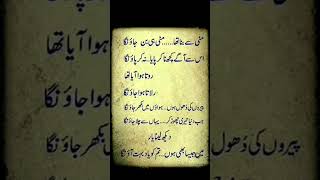 مٹی سے بنا تھا.....مٹی ہی بن جاؤنگا
اس سے آگے کچھ نا کر پایا نہ کر پاؤنگا
روتا ہوا آیا تھا
رلاتا ہوا جاؤنگا
پیروں کی دُھول ہوں.. ہواؤں میں بکھر جاؤنگا
جب دنیا تیری چھوڑ کر.... یہاں سے چلا جاؤنگا
پیروں کی دُھول ہوں بکھر جاؤنگا
دیکھ لینا یار
میں جیسا بھی ہوں.. تم کو یاد بہت آؤنگا